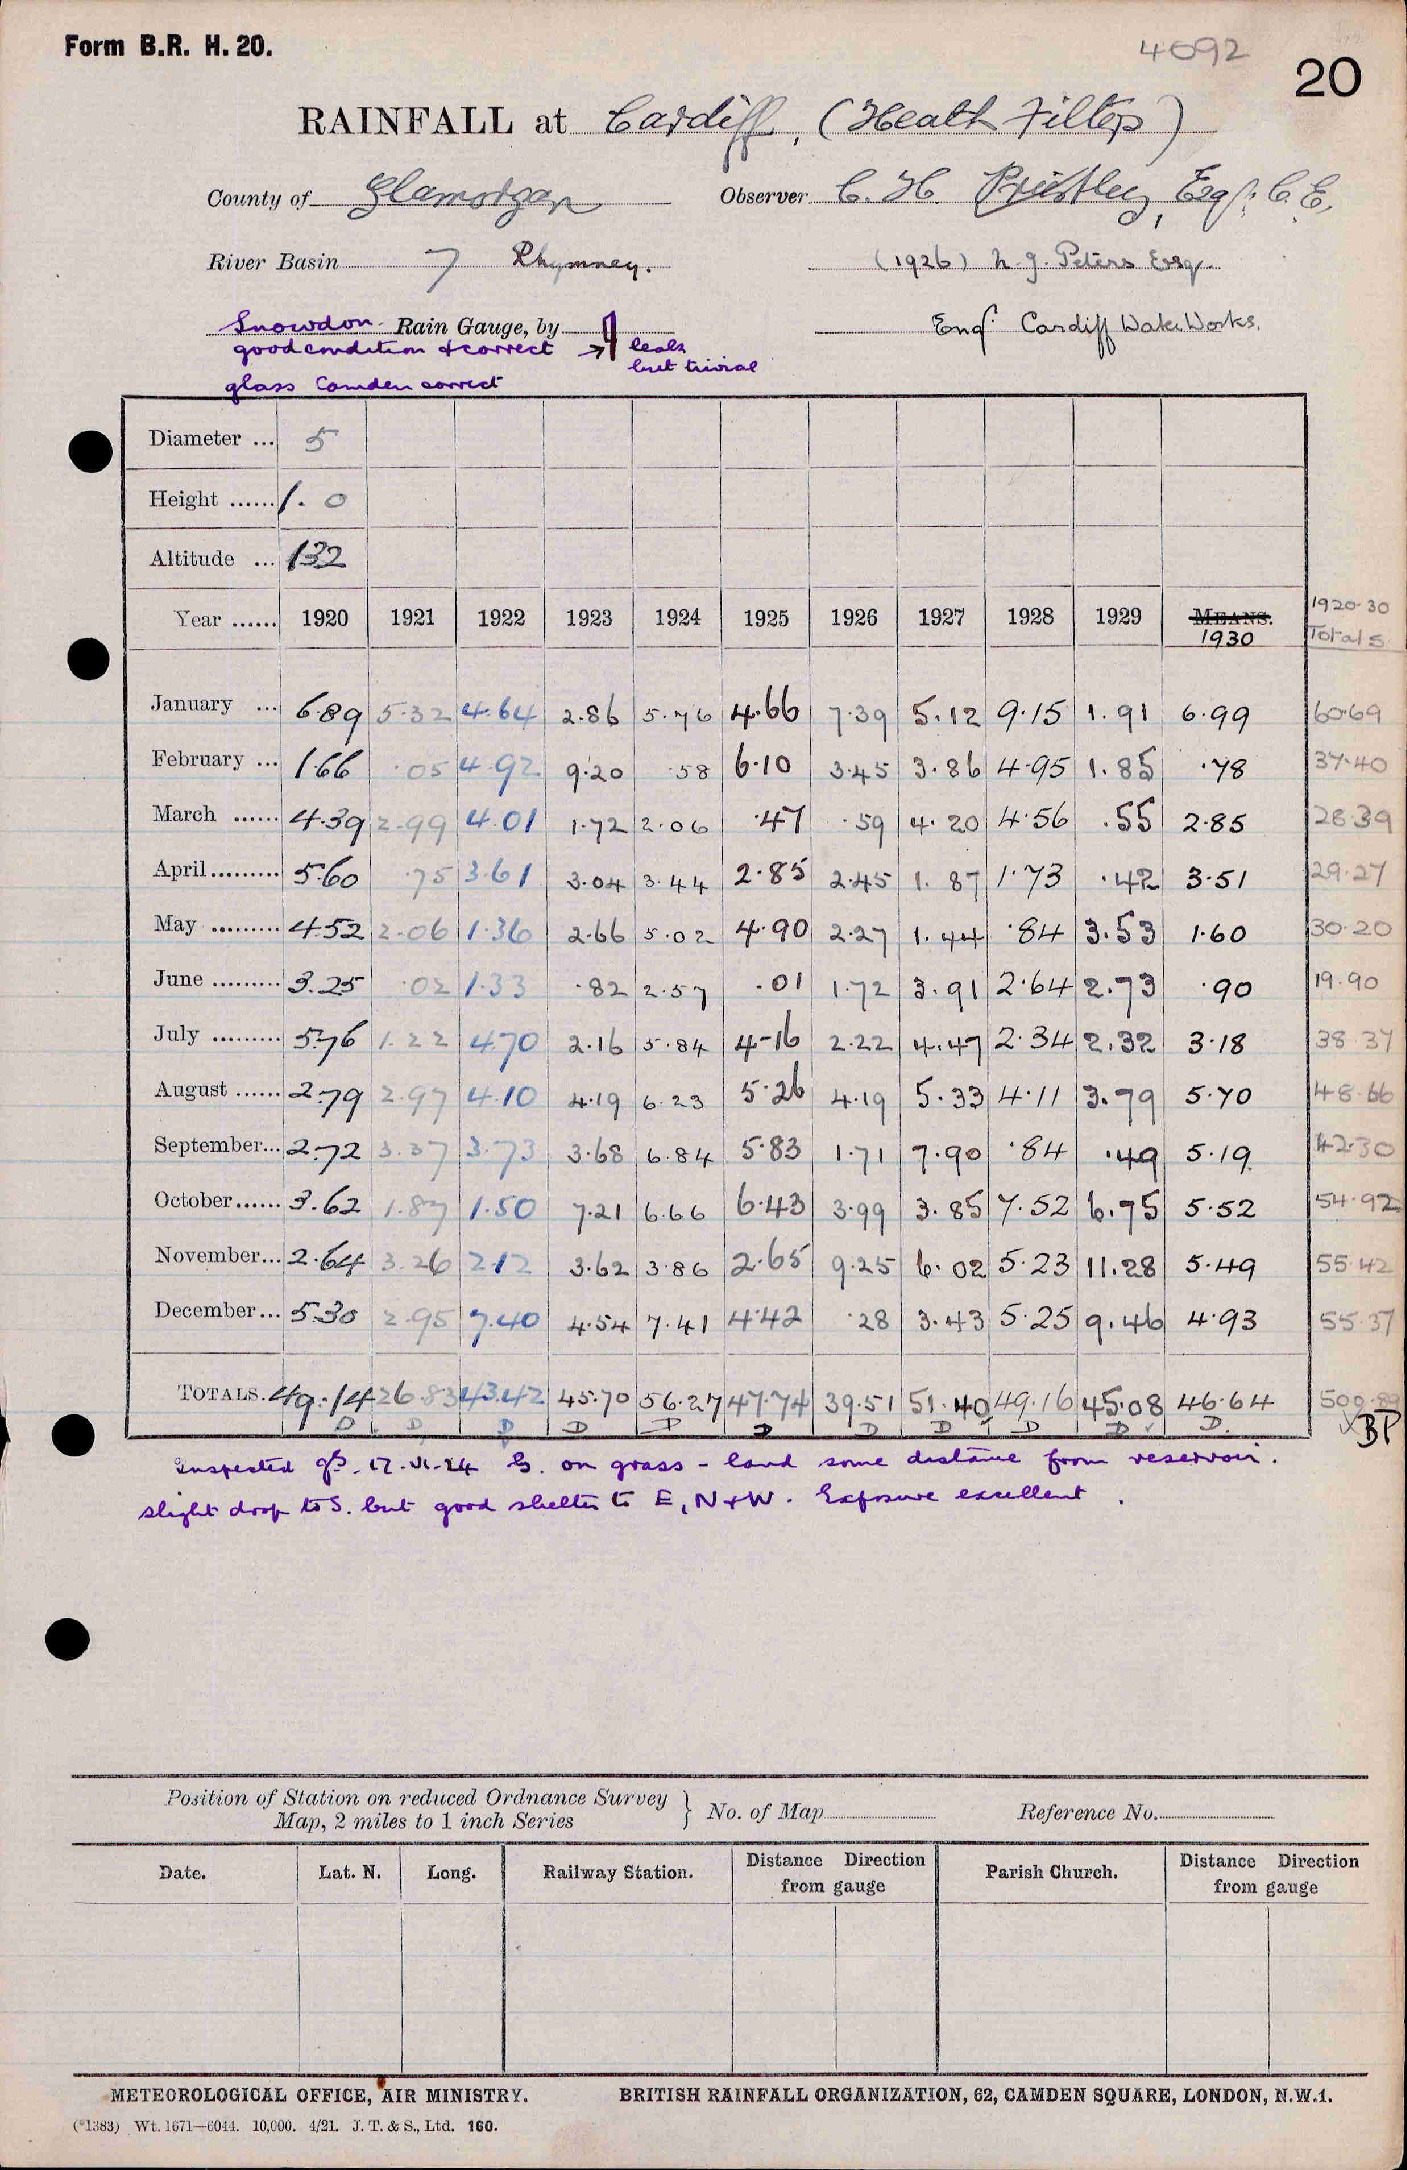 Form B.R. H. 20.
4092
20
RAINFALL at Cardiff, (Heath Filters)
County of Glamorgan Observer C. H. Priestley, Esq., C.E.
River Basin 7 Rhymney. (1926) N. J. Peters Esq.
Snowdon Rain Gauge, by Engr. Cardiff Water Works.
good condition & correct → leaks
but trivial
glass Camden correct
Diameter ... 5
Height ...... 1. 0
Altitude ... 132
Year ...... 1920 1921 1922 1923 1924 1925 1926 1927 1928 1929 MEANS. 1930 1920-30 Totals
January ... 6.89 5.32 4.64 2.86 5.76 4.66 7.39 5.12 9.15 1.91 6.99 60.69
February ... 1.66 .05 4.92 9.20 .58 6.10 3.45 3.86 4.95 1.85 .78 37.40
March ...... 4.39 2.99 4.01 1.72 2.06 .47 .59 4.20 4.56 .55 2.85 28.39
April ......... 5.60 .75 3.61 3.04 3.44 2.85 2.45 1.87 1.73 .42 3.51 29.27
May ......... 4.52 2.06 1.36 2.66 5.02 4.90 2.27 1.44 .84 3.53 1.60 30.20
June ......... 3.25 .02 1.33 .82 2.57 .01 1.72 3.91 2.64 2.73 .90 19.90
July ......... 5.76 1.22 4.70 2.16 5.84 4.16 2.22 4.47 2.34 2.32 3.18 38.37
August ...... 2.79 2.97 4.10 4.19 6.23 5.26 4.19 5.33 4.11 3.79 5.70 48.66
September... 2.72 3.37 3.73 3.68 6.84 5.83 1.71 7.90 .84 .49 5.19 42.30
October ...... 3.62 1.87 1.50 7.21 6.66 6.43 3.99 3.85 7.52 6.75 5.52 54.92
November... 2.64 3.26 2.12 3.62 3.86 2.65 9.25 6.02 5.23 11.28 5.49 55.42
December ... 5.30 2.95 7.40 4.54 7.41 4.42 .28 3.43 5.25 9.46 4.93 55.37
TOTALS. 49.14 26.83 43.42 45.70 56.27 47.74 39.51 51.40 49.16 45.08 46.64 500.89
D D D D D D D D D D D. BP
Inspected 17.VI.24 G. on grass - land some distance from reservoir.
slight drop to S. but good shelter to E, N & W. Exposure excellent.
Position of Station on reduced Ordnance Survey
Map, 2 miles to 1 inch Series } No. of Map Reference No.
Date. Lat. N. Long. Railway Station. Distance Direction from gauge Parish Church. Distance Direction from gauge
METEOROLOGICAL OFFICE, AIR MINISTRY. BRITISH RAINFALL ORGANIZATION, 62, CAMDEN SQUARE, LONDON, N.W.1.
(*1383) Wt. 1671—6044. 10,000. 4/21. J. T. & S., Ltd. 160.